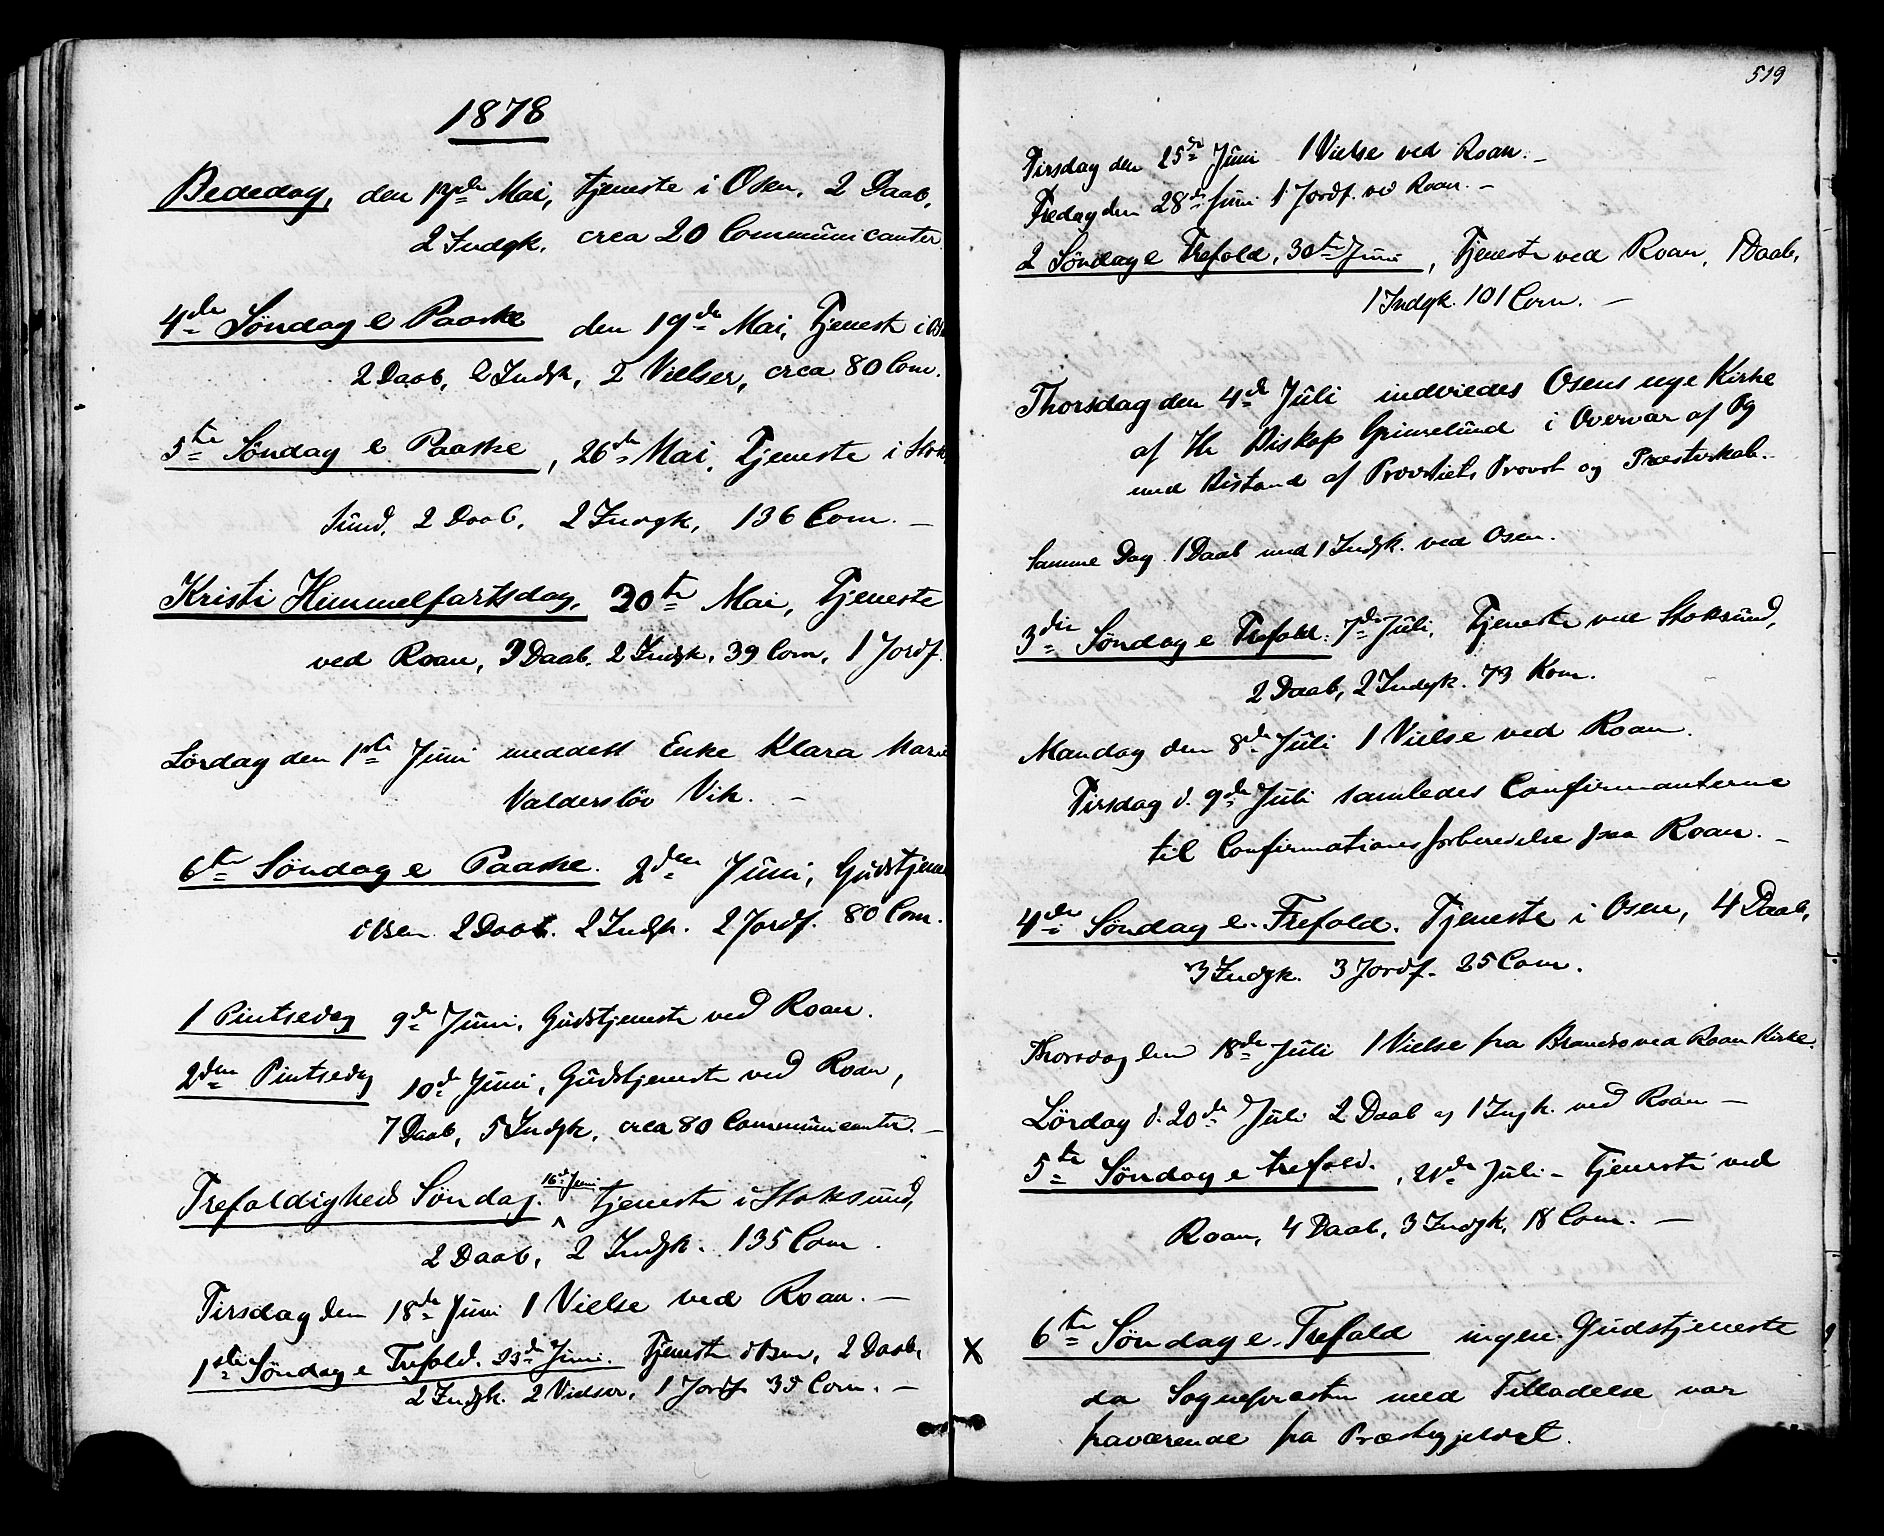 1878
Bededag, den 17de Mai, Tjeneste i Osen, 2 Daab,
2 Indgk, crca 20 Communicanter
4de Søndag e Paaske den 19de Mai, Tjenest i
2 Daab, 2 Indgk, 2 Vielser, crca 80 Com.
5te Søndag e Paaske, 26de Mai, Tjeneste i Stok
sund, 2 Daab, 2 Indgk, 136 Com. —
Kristi Himmelfartsdag, 30te Mai, Tjeneste
ved Roan, 3 Daab. 2 Indgk, 39 Com, 1 Jordf.
Lørdag den 1ste Juni meddelt Enke Klara Mari
Vik. —
6te Søndag e Paaske. 2den Juni, Gudstjene
i Osen 2 Daab. 2 Indgk. 2 Jordf. 80 Com.
1 Pintsedag 9de Juni, Gudstjeneste ved Roan.
2den Pintsedag 10de Juni, Gudstjeneste ved Roan,
7 Daab, 5 Indgk, crca 80 Communicanter. —
Trefoldigheds Søndag. 16de Juni Tjeneste i Stoksund,
2 Daab, 2 Indgk. 135 Com.
Tirsdag den 18de Juni 1 Vielse ved Roan. —
1ste Søndag e Trefold. 23de Juni. Tjeneste i Osen, 2 Daab,
2 Indgk. 2 Vielser, 1 Jordf Com. —
519
Tirsdag den 25de Juni 1 Vielse ved Roan. —
Fredag den 28de Juni 1 Jordf. ved Roan. —
2 Søndag e Trefold, 30te Juni, Tjeneste ved Roan, 1 Daab,
1 Indgk. 101 Com. —
Thorsdag den 4de Juli indviedes Osens nye Kirke
af Hr Biskop Grimelund i Overvær af og
med Bistand af Provstiets Provst og Præsteskab. -
Samme Dag 1 Daab med 1 Indgk. ved Osen.
3die Søndag e Trefold. 7de Juli, Tjeneste ved Stoksund,
2 Daab, 2 Indgk. 73 Kom.
Mandag den 8de Juli 1 Vielse ved Roan.
Tirsdag d. 9de Juli samledes Confirmanterne
til Confirmationsforberedelse paa Roan. —
4de Søndag e. Trefold. Tjeneste i Osen, 4 Daab,
3 Indgk. 3 Jordf. 25 Com.
Thorsdag den 18de Juli 1 Vielse fra ved Roan Kirke.
Lørdag d. 20de Juli 2 Daab og 1 Ingk. ved Roan —
5te Søndag e trefold. , 21de Juli - Tjeneste ved
Roan, 4 Daab, 3 Indgk, 18 Com. —
X 6te Søndag e. Trefold ingen Gudstjeneste
da Sognepræsten med Tilladelse var
fraværende fra Præstegjeldet.